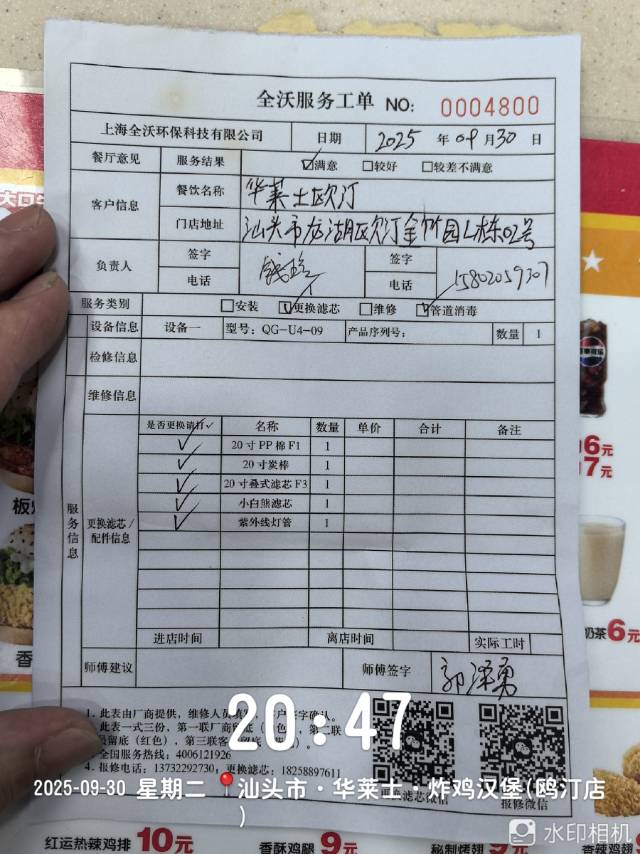 全沃服务工单 NO: 0004800
上海全沃环保科技有限公司 日期 2025 年 09 月 30 日
餐厅意见 服务结果 ☑满意 □较好 □较差不满意
客户信息 餐饮名称 华莱士欧汀
门店地址 汕头市龙湖区欧汀金竹园L栋02号
负责人 签字 签字
电话 电话 15802059307
服务类别 □安装 ☑更换滤芯 □维修 ☑管道消毒
设备信息 设备一 型号: QG-U4-09 产品序列号: 数量 1
检修信息
维修信息
服务信息
更换滤芯/配件信息
是否更换请打✓ 名称 数量 单价 合计 备注
✓ 20寸PP棉F1 1
✓ 20寸炭棒 1
✓ 20寸叠式滤芯F3 1
✓ 小白熊滤芯 1
✓ 紫外线灯管 1
进店时间 离店时间 实际工时
师傅建议 师傅签字 郭泽勇
1. 此表由厂商提供, 维修人员
此表一式三份, 第一联厂商留
留底(红色), 第三联客
全国服务热线: 4006121926
4. 报修电话: 13732292730; 更换滤芯: 18258897611
滤芯微信 报修微信
20:47
2025-09-30 星期二 汕头市·华莱士·炸鸡汉堡(鸥汀店)
水印相机
6元
7元
奶茶6元
红运热辣鸡排 10元
香酥鸡腿 9元
秘制烤翅
香辣鸡翅